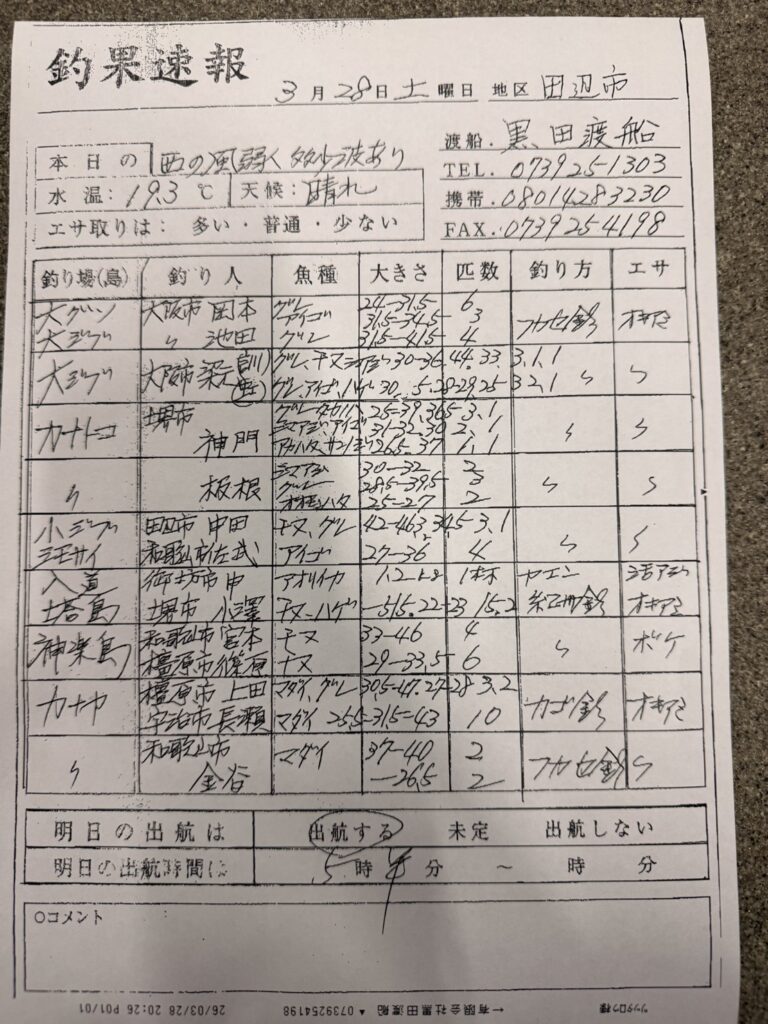 釣果速報
3月28日土曜日 地区 田辺市
渡船. 黒田渡船
TEL. 0739251303
携帯. 08014283230
FAX. 0739254198
本日の 西の風弱く 多少波あり
水温: 19.3 ℃ 天候: 晴れ
エサ取りは: 多い・普通・少ない
釣り場(島) 釣り人 魚種 大きさ 匹数 釣り方 エサ
大グソ 大阪市 岡本 グレ 24-31.5 6 フカセ釣 オキアミ
アイゴ 31.5-34.5 3
大ジブ 〃 池田 グレ 31.5-41.5 4
大ジブ 大阪市 グレ、チヌ 30-36. 44. 33. 3.1.1 〃 〃
グレ、アイゴ、ハゲ 28-29.25 3.2.1
カナトコ 堺市 神門 25-39. 36.5 3.1 〃 〃
シマアジ、アイゴ 31-32. 30 2.1
アカハタ、サンノジ 26.5-37 1.1
〃 板根 シマアジ 30-32 2 〃 〃
グレ 28.5-39.5 3
オオモンハタ 25-27 2
小ジブ 田辺市 中田 チヌ、グレ 42-46.3. 34.5 3.1 〃 〃
ミモサイ 和歌山市 佐武 アイゴ 27-36 4
入道 御坊市 中 アオリイカ 1.2 1杯 ヤエン 活アジ
塔島 堺市 小澤 チヌ、ハゲ -51.5. 22-23 15.2 紀州釣 オキアミ
神楽島 和歌山市 宮本 チヌ 33-46 4 〃 ボケ
橿原市 篠原 チヌ 29-33.5 6
カナヤ 橿原市 上田 マダイ、グレ 30.5-47. 27-28 3.2 カゴ釣 オキアミ
宇治市 長瀬 マダイ 25.5-31.5-43 10
〃 和歌山市 マダイ 37-40 2 フカセ釣 〃
金谷 -26.5 2
明日の出航は 出航する 未定 出航しない
明日の出航時間は 5時半分 〜 時 分
○コメント
26/03/28 20:26 P01/01 ←有限会社黒田渡船 ▲ 0739254198 ツリタロウ様